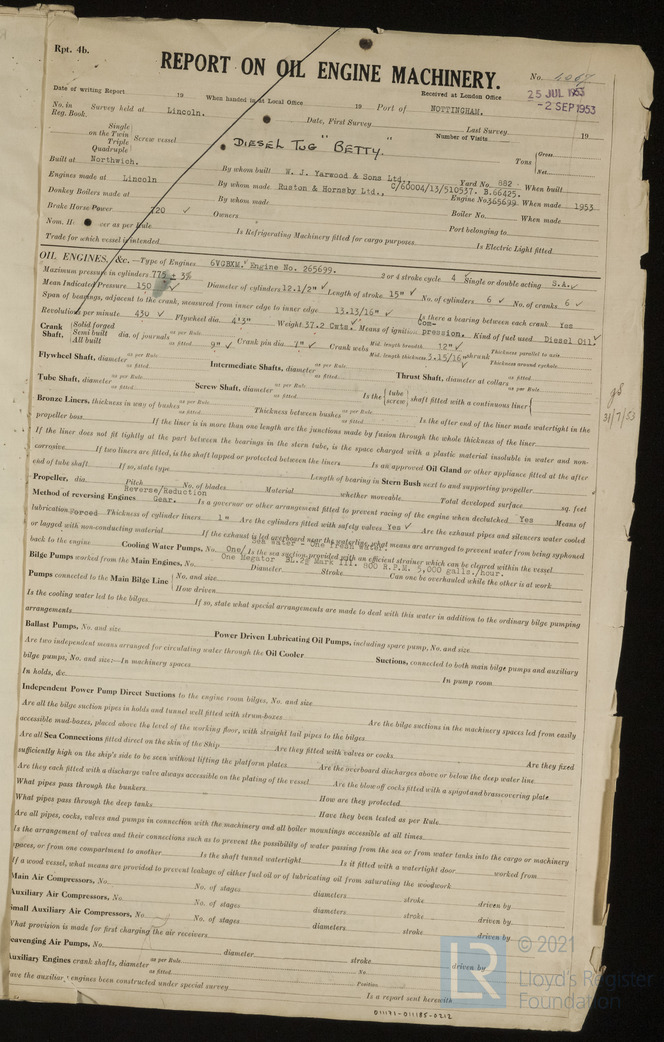 Rpt. 4b.
REPORT ON OIL ENGINE MACHINERY.
No. 4067
25 JUL 1953
-2 SEP 1953
Date of writing Report 19 When handed in at Local Office 19 Port of NOTTINGHAM. Received at London Office
No. in Reg. Book. Survey held at Lincoln. Date, First Survey Last Survey 19
Number of Visits
Single on the Twin Triple Quadruple Screw vessel DIESEL TUG "BETTY. Tons Gross Net
Built at Northwich. By whom built W. J. Yarwood & Sons Ltd., Yard No. 882 When built
Engines made at Lincoln By whom made Ruston & Hornsby Ltd., C/60004/13/510537. B.66425. Engine No. 365699. When made 1953
Donkey Boilers made at By whom made Boiler No. When made
Brake Horse Power 720 Owners Port belonging to
Nom. H er as per Rule Is Refrigerating Machinery fitted for cargo purposes Is Electric Light fitted
Trade for which vessel is intended
OIL ENGINES, &c.—Type of Engines 6VGBXM. Engine No. 265699. 2 or 4 stroke cycle 4 Single or double acting S.A.
Maximum pressure in cylinders 775 ± 3% Diameter of cylinders 12.1/2" Length of stroke 15" No. of cylinders 6 No. of cranks 6
Mean Indicated Pressure 150
Span of bearings, adjacent to the crank, measured from inner edge to inner edge 13.13/16" Is there a bearing between each crank Yes
Revolutions per minute 430 Flywheel dia. 4'3" Weight 37.2 Cwts. Means of ignition Compression. Kind of fuel used Diesel Oil
Crank Shaft, Solid forged Semi built All built dia. of journals as per Rule as fitted 9" Crank pin dia. 7" Crank webs Mid. length breadth 12" Mid. length thickness 3.15/16" shrunk Thickness parallel to axis Thickness around eyehole
Flywheel Shaft, diameter as per Rule as fitted Intermediate Shafts, diameter as per Rule as fitted Thrust Shaft, diameter at collars as fitted as per Rule
Tube Shaft, diameter as per Rule as fitted Screw Shaft, diameter as per Rule as fitted Is the tube screw shaft fitted with a continuous liner
Bronze Liners, thickness in way of bushes as per Rule as fitted Thickness between bushes as per Rule as fitted Is the after end of the liner made watertight in the
propeller boss If the liner is in more than one length are the junctions made by fusion through the whole thickness of the liner
If the liner does not fit tightly at the part between the bearings in the stern tube, is the space charged with a plastic material insoluble in water and non-
corrosive If two liners are fitted, is the shaft lapped or protected between the liners Is an approved Oil Gland or other appliance fitted at the after
end of tube shaft If so, state type Length of bearing in Stern Bush next to and supporting propeller
Propeller, dia. Pitch No. of blades Material whether moveable Total developed surface sq. feet
Method of reversing Engines Reverse/Reduction Gear. Is a governor or other arrangement fitted to prevent racing of the engine when declutched Yes Means of
lubrication Forced Thickness of cylinder liners 1" Are the cylinders fitted with safety valves Yes Are the exhaust pipes and silencers water cooled
or lagged with non-conducting material If the exhaust is led overboard near the waterline, what means are arranged to prevent water from being syphoned
back to the engine Cooling Water Pumps, No. One/ Sea Water - One fresh water. Is the sea suction provided with an efficient strainer which can be cleared within the vessel
Bilge Pumps worked from the Main Engines, No. One Megator BL.2½ Mark III. 800 R.P.M. 5,000 galls./hour. Diameter Stroke Can one be overhauled while the other is at work
Pumps connected to the Main Bilge Line No. and size How driven
Is the cooling water led to the bilges If so, state what special arrangements are made to deal with this water in addition to the ordinary bilge pumping
arrangements
Ballast Pumps, No. and size Power Driven Lubricating Oil Pumps, including spare pump, No. and size
Are two independent means arranged for circulating water through the Oil Cooler Suctions, connected to both main bilge pumps and auxiliary
bilge pumps, No. and size:—In machinery spaces In pump room
In holds, &c.
Independent Power Pump Direct Suctions to the engine room bilges, No. and size
Are all the bilge suction pipes in holds and tunnel well fitted with strum-boxes Are the bilge suctions in the machinery spaces led from easily
accessible mud-boxes, placed above the level of the working floor, with straight tail pipes to the bilges
Are all Sea Connections fitted direct on the skin of the Ship Are they fitted with valves or cocks Are they fixed
sufficiently high on the ship's side to be seen without lifting the platform plates Are the overboard discharges above or below the deep water line
Are they each fitted with a discharge valve always accessible on the plating of the vessel Are the blow off cocks fitted with a spigot and brass covering plate
What pipes pass through the bunkers How are they protected
What pipes pass through the deep tanks Have they been tested as per Rule
Are all pipes, cocks, valves and pumps in connection with the machinery and all boiler mountings accessible at all times
Is the arrangement of valves and their connections such as to prevent the possibility of water passing from the sea or from water tanks into the cargo or machinery
spaces, or from one compartment to another Is the shaft tunnel watertight Is it fitted with a watertight door worked from
If a wood vessel, what means are provided to prevent leakage of either fuel oil or of lubricating oil from saturating the woodwork
Main Air Compressors, No. No. of stages diameters stroke driven by
Auxiliary Air Compressors, No. No. of stages diameters stroke driven by
Small Auxiliary Air Compressors, No. No. of stages diameters stroke driven by
What provision is made for first charging the air receivers
Scavenging Air Pumps, No. diameter stroke driven by
Auxiliary Engines crank shafts, diameter as per Rule as fitted No. Position
Have the auxiliary engines been constructed under special survey Is a report sent herewith
31/7/53
© 2021
Lloyd's Register
Foundation
LR
011171-011185-0212